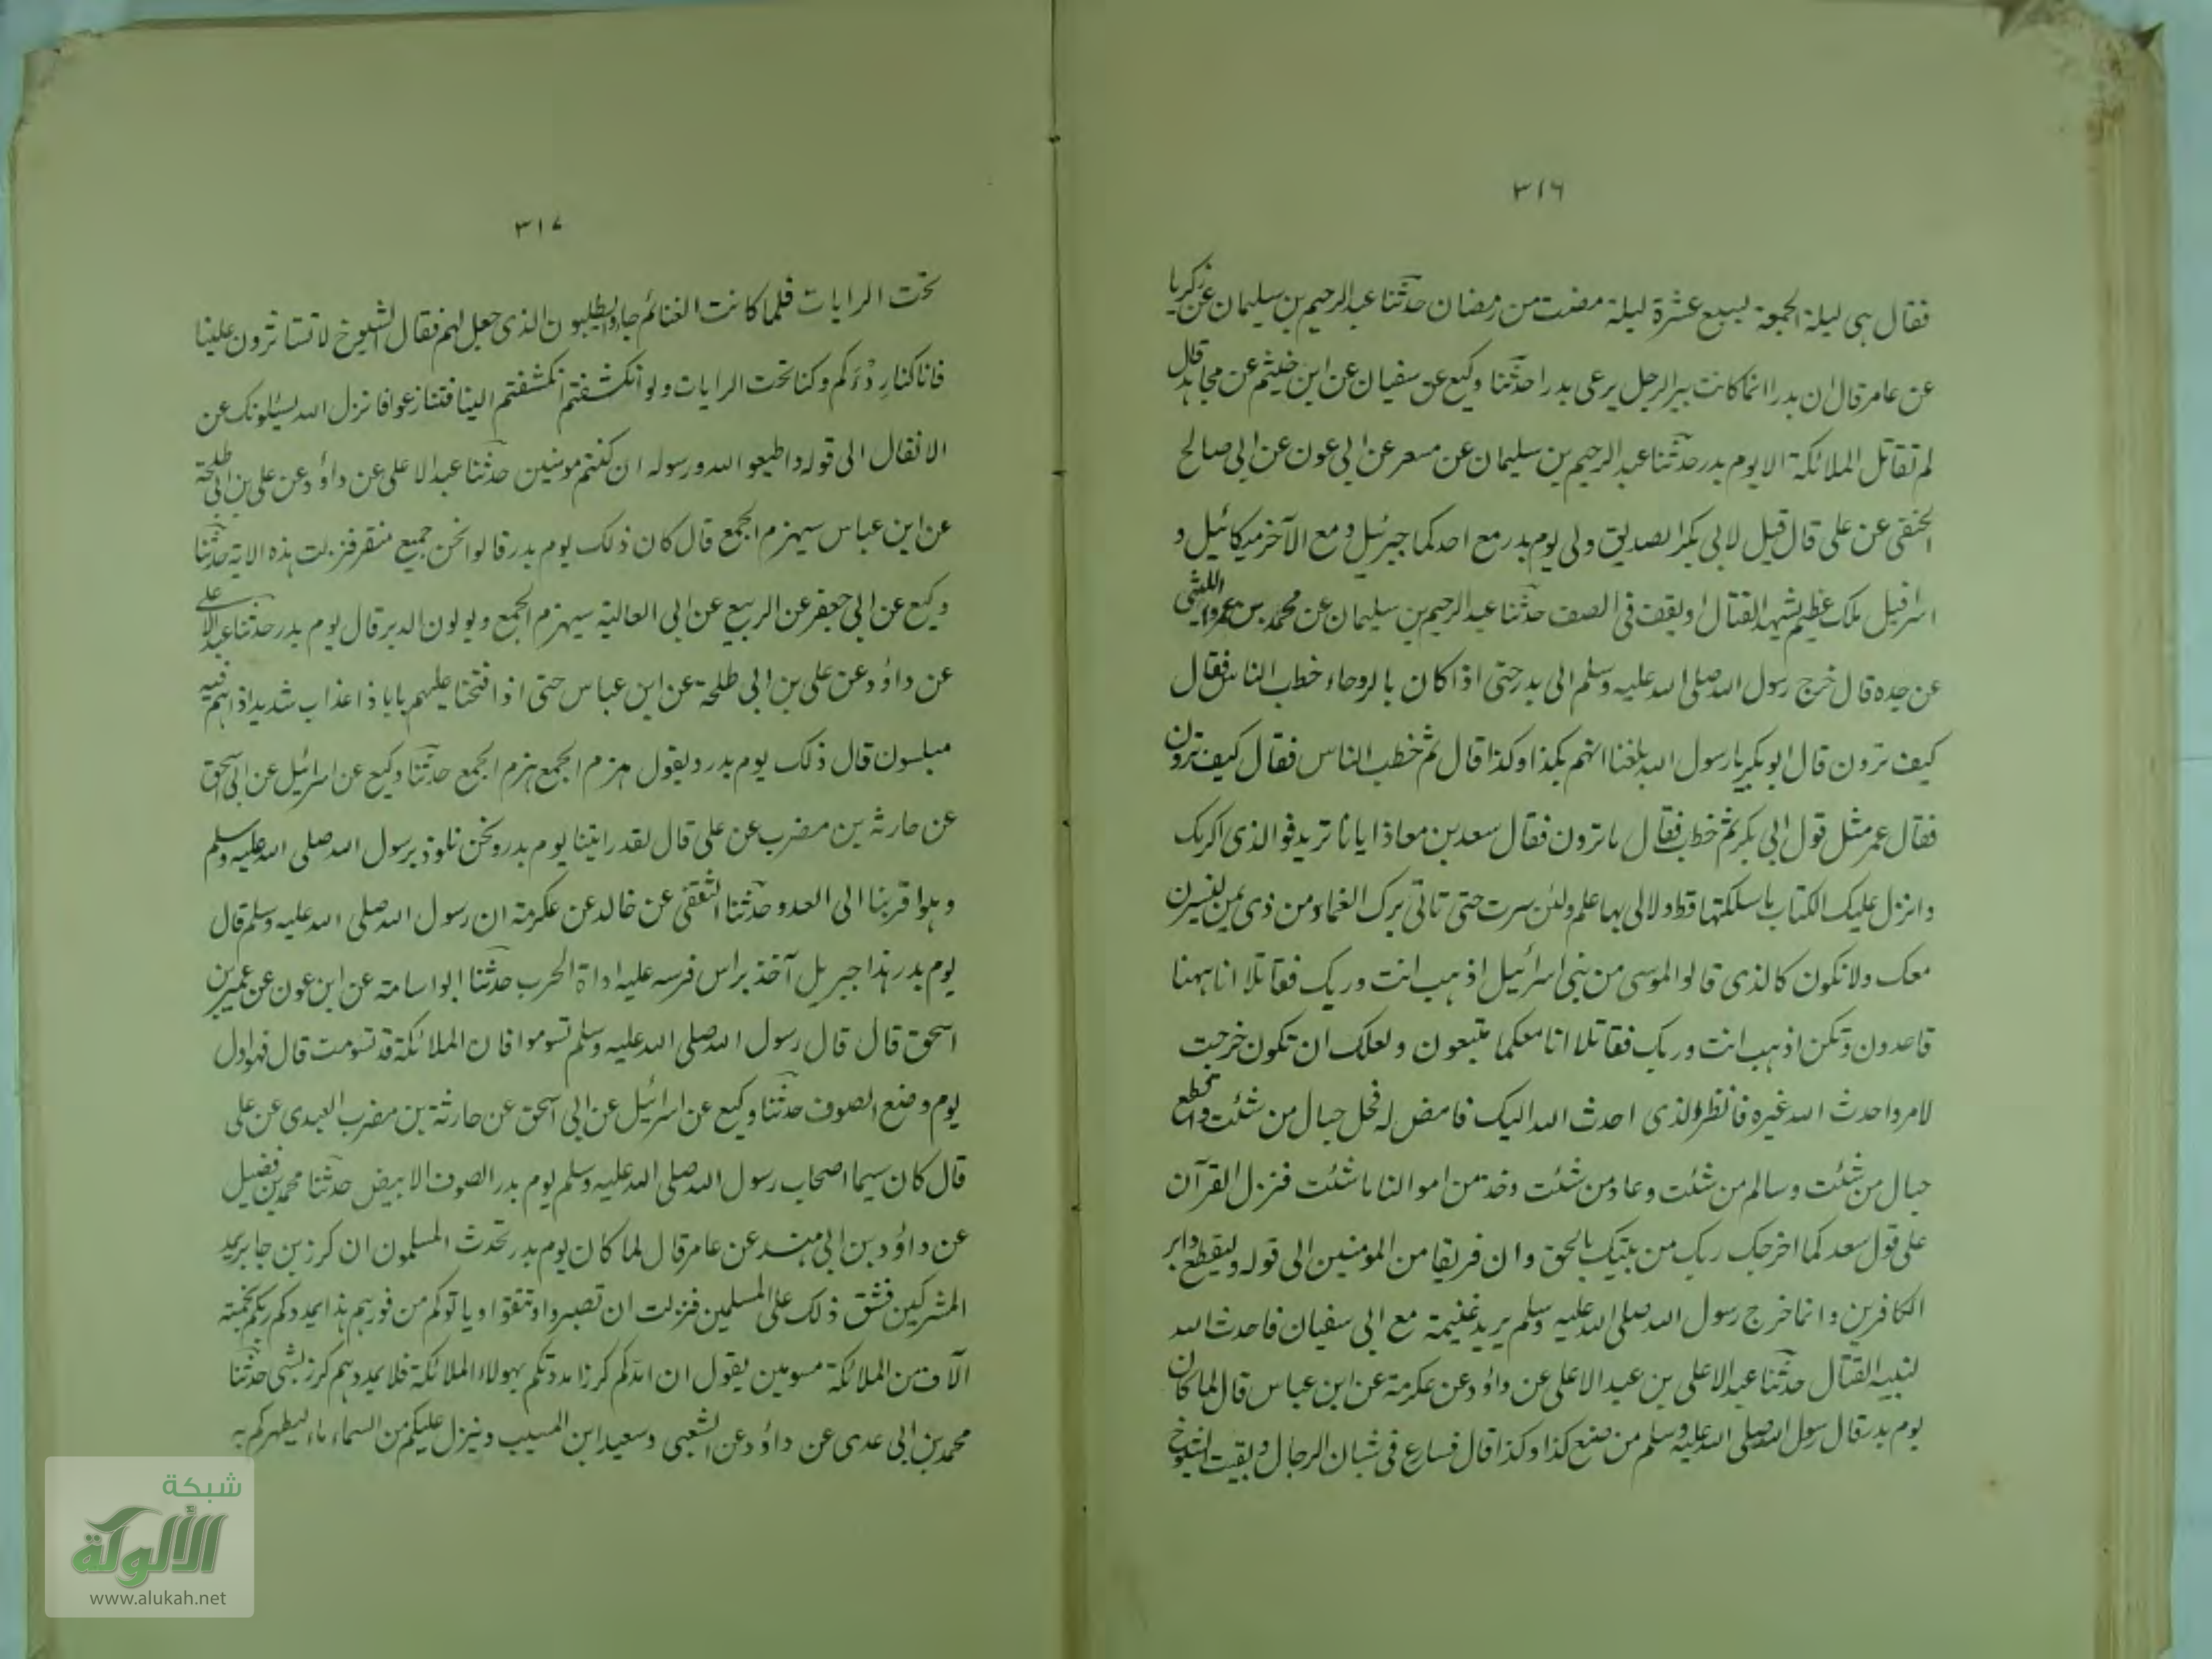 ٣١٦
فقال ہی لیلۃ الجمعۃ لسبع عشرۃ لیلۃ مضت من رمضان حدثنا عبدالرحیم بن سلیمان عن زکریا
عن عامر قال ان بدرا انما کانت بیرالرجل یدعی بدرا حدثنا وکیع عن سفیان عن ابن خثیم عن مجاہد قال
لم تقاتل الملائکۃ الا یوم بدر حدثنا عبدالرحیم بن سلیمان عن مسعر عن ابی عون عن ابی صالح
الحنفی عن علی قال قیل لابی بکر الصدیق ولی یوم بدر مع احدکما جبرئیل ومع الآخر میکائیل و
اسرافیل ملک عظیم یشہد القتال او یقف فی الصف حدثنا عبدالرحیم بن سلیمان عن محمد بن عمرو اللیثی
عن جدہ قال خرج رسول اللہ صلی اللہ علیہ وسلم الی بدر حتی اذا کان بالروحاء خطب الناس فقال
کیف ترون قال ابوبکر یا رسول اللہ بلغنا انہم بکذا وکذا قال ثم خطب الناس فقال کیف ترون
فقال عمر مثل قول ابی بکر ثم خطب فقال ما ترون فقال سعد بن معاذ ایانا ترید فوالذی اکرمک
وانزل علیک الکتاب ما سلکتہا قط ولا لی بہا علم ولئن سرت حتی تاتی برک الغماد من ذی یمن لنسیرن
معک ولا نکون کالذی قالوا لموسی من بنی اسرائیل اذہب انت وربک فقاتلا انا ہہنا
قاعدون ولکن اذہب انت وربک فقاتلا انا معکما متبعون ولعلک ان تکون خرجت
لامر واحدث اللہ غیرہ فانظر والذی احدث اللہ الیک فامض لہ فحل حبال من شئت واقطع
حبال من شئت وسالم من شئت وعاد من شئت وخذ من اموالنا ما شئت فنزل القرآن
علی قول سعد کما اخرجک ربک من بیتک بالحق وان فریقا من المومنین الی قولہ ولیقطع دابر
الکافرین وانما خرج رسول اللہ صلی اللہ علیہ وسلم یرید غنیمۃ مع ابی سفیان فاحدث اللہ
لنبیہ القتال حدثنا عبدالاعلی بن عبدالاعلی عن داؤد عن عکرمۃ عن ابن عباس قال لما کان
یوم بدر قال رسول اللہ صلی اللہ علیہ وسلم من صنع کذا وکذا قال فسارع فی شبان الرجال وبقیت الشیوخ
٣١٧
تحت الرایات فلما کانت الغنائم جاؤا یطلبون الذی جعل لہم فقال الشیوخ لا تستاثرون علینا
فانا کنا رِدْءَ کم وکنا تحت الرایات ولو انکشفتم انکشفتم الینا فتنازعوا فانزل اللہ یسئلونک عن
الانفال الی قولہ واطیعوا اللہ ورسولہ ان کنتم مومنین حدثنا عبدالاعلی عن داؤد عن علی بن ابی طلحۃ
عن ابن عباس سیہزم الجمع قال کان ذلک یوم بدر قالوا نحن جمیع منتصر فنزلت ہذہ الایۃ حدثنا
وکیع عن ابی جعفر عن الربیع عن ابی العالیۃ سیہزم الجمع ویولون الدبر قال یوم بدر حدثنا عبدالاعلی
عن داؤد عن علی بن ابی طلحۃ عن ابن عباس حتی اذا فتحنا علیہم بابا ذا عذاب شدید اذا ہم فیہ
مبلسون قال ذلک یوم بدر ویقول ہزم الجمع ہزم الجمع حدثنا وکیع عن اسرائیل عن ابی اسحق
عن حارثۃ بن مضرب عن علی قال لقد رایتنا یوم بدر ونحن نلوذ برسول اللہ صلی اللہ علیہ وسلم
وہو اقربنا الی العدو حدثنا الثقفی عن خالد عن عکرمۃ ان رسول اللہ صلی اللہ علیہ وسلم قال
یوم بدر ہذا جبریل آخذ براس فرسہ علیہ اداۃ الحرب حدثنا ابو اسامۃ عن ابن عون عن عمیر بن
اسحق قال قال رسول اللہ صلی اللہ علیہ وسلم تسوموا فان الملائکۃ قد تسومت قال فہو اول
یوم وضع الصوف حدثنا وکیع عن اسرائیل عن ابی اسحق عن حارثۃ بن مضرب العبدی عن علی
قال کان سیما اصحاب رسول اللہ صلی اللہ علیہ وسلم یوم بدر الصوف الابیض حدثنا محمد بن فضیل
عن داؤد بن ابی ہند عن عامر قال لما کان یوم بدر تحدث المسلمون ان کرز بن جابر یمد
المشرکین فشق ذلک علی المسلمین فنزلت ان تصبروا وتتقوا ویاتوکم من فورہم ہذا یمددکم ربکم بخمسۃ
الآف من الملائکۃ مسومین یقول ان امدکم کرز امددتکم بہولاء الملائکۃ فلا یمددہم کرز بشی حدثنا
محمد بن ابی عدی عن داؤد عن الشعبی وسعید ابن المسیب وینزل علیکم من السماء ماء لیطہرکم بہ
شبكة
الألوكة
www.alukah.net